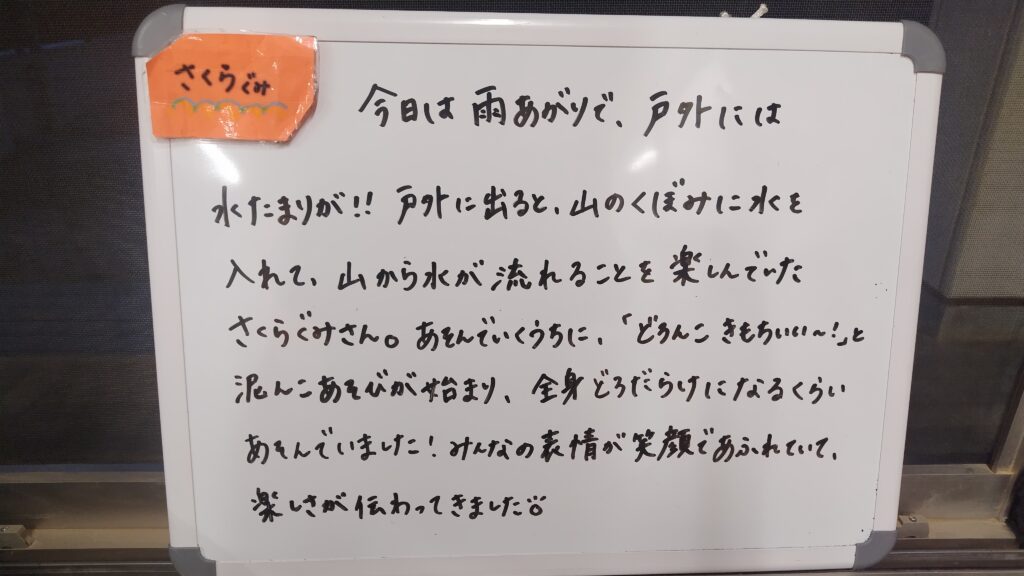 さくらぐみ
今日は雨あがりで、戸外には
水たまりが!! 戸外に出ると、山のくぼみに水を
入れて、山から水が流れることを楽しんでいた
さくらぐみさん。あそんでいくうちに、「どろんこ きもちいい〜!」と
泥んこあそびが始まり、全身どろだらけになるくらい
あそんでいました!みんなの表情が笑顔であふれていて、
楽しさが伝わってきました